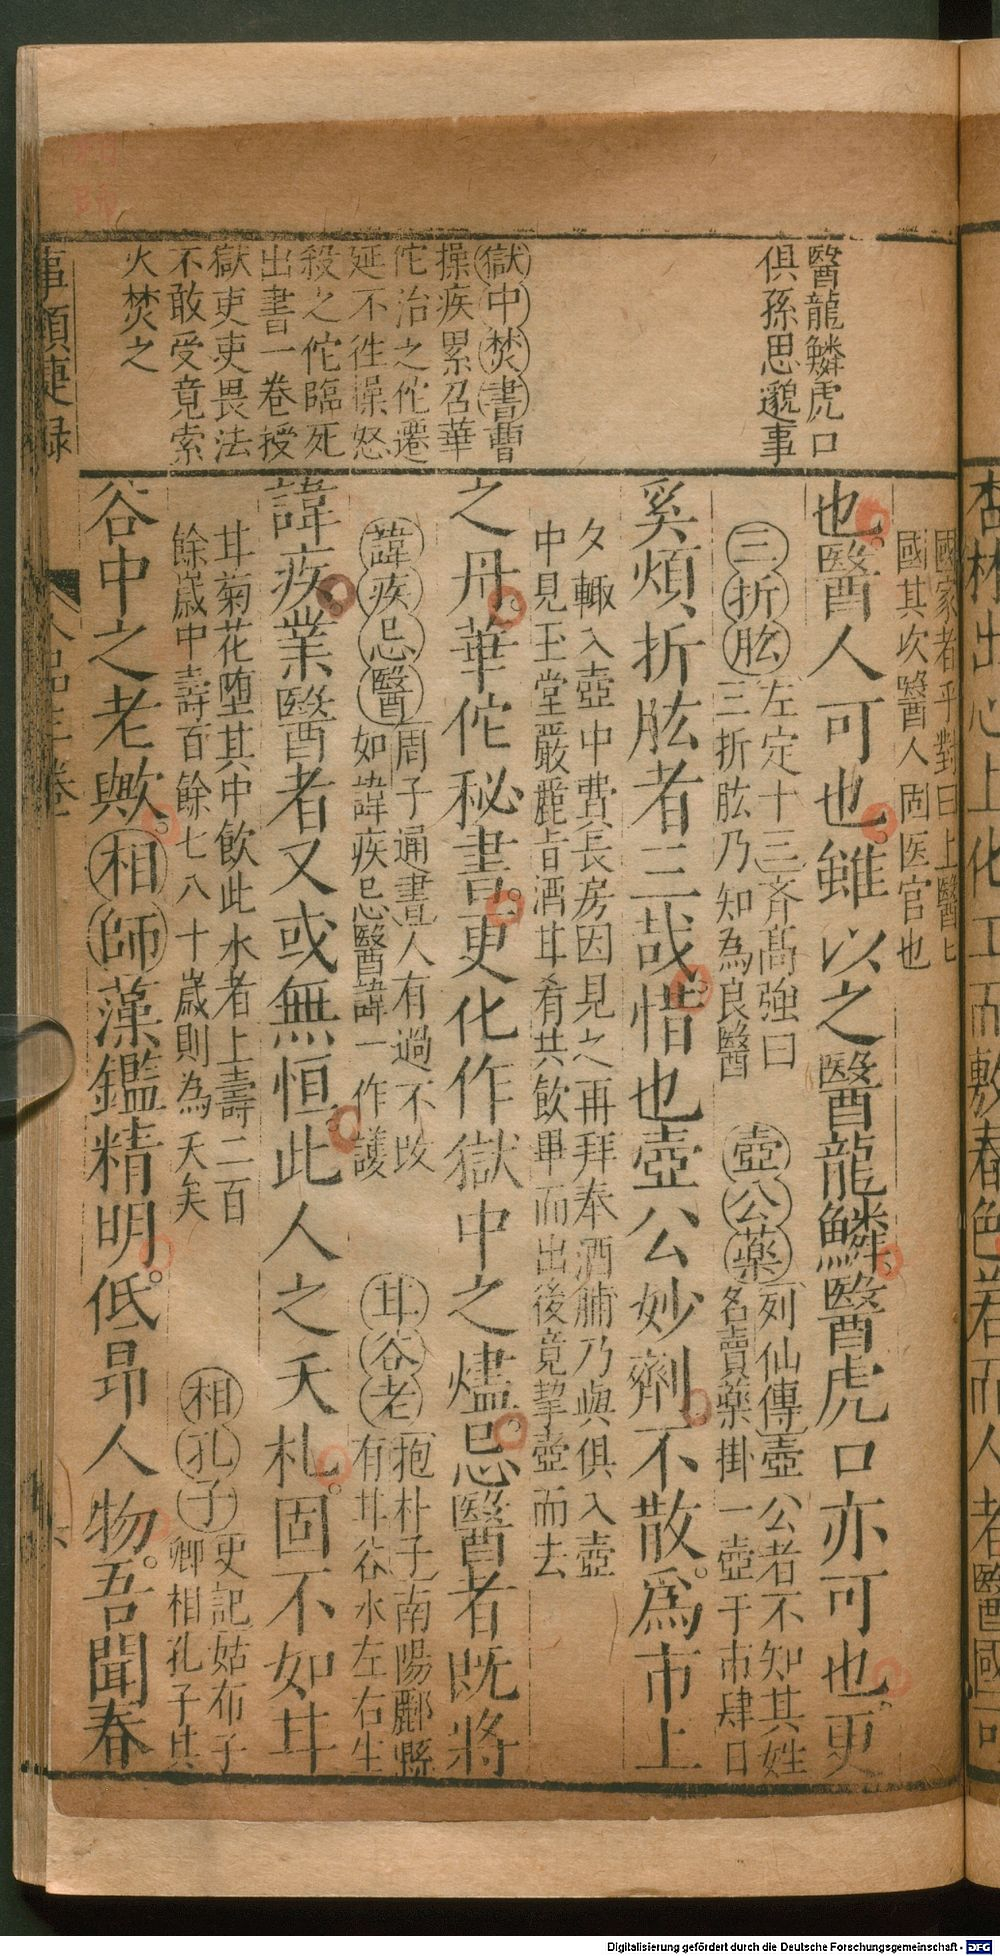 醫龍鱗虎口
俱孫思邈事
獄中焚書曹
操疾累召華
佗治之佗遷
延不徃操怒
殺之佗臨死
出書一卷授
獄吏吏畏法
不敢受竟索
火焚之
國家者乎對曰上醫匕
國其次醫人固医官也
也醫人可也雖以之醫龍鱗醫虎口亦可也更
三折肱左定十三齐高強曰
三折肱乃知為良醫
壺公藥列仙傳壺公者不知其姓
名賣藥掛一壺于市肆日
奚煩折肱者三哉惜也壺公妙劑不散爲市上
夕輙入壺中費長房因見之再拜奉酒脯乃與俱入壺
中見玉堂嚴麗旨酒甘肴共飲畢而出後竟挈壺而去
之丹華佗秘書更化作獄中之燼忌醫者既將
諱疾忌醫周子通書人有過不改
如諱疾忌醫諱一作護
甘谷老抱朴子南陽酈縣
有甘谷水左右生
諱疾業醫者又或無恒此人之夭札固不如甘
甘菊花堕其中飲此水者上壽二百
餘歲中壽百餘七八十歲則為夭矣
相孔子史記姑布子
卿相孔子其
谷中之老歟相師藻鑑精明低昂人物吾聞春
事類捷録
相
師
杏林出心上化工而敷春色若而人者醫國可
Digitalisierung gefördert durch die Deutsche Forschungsgemeinschaft - DFG